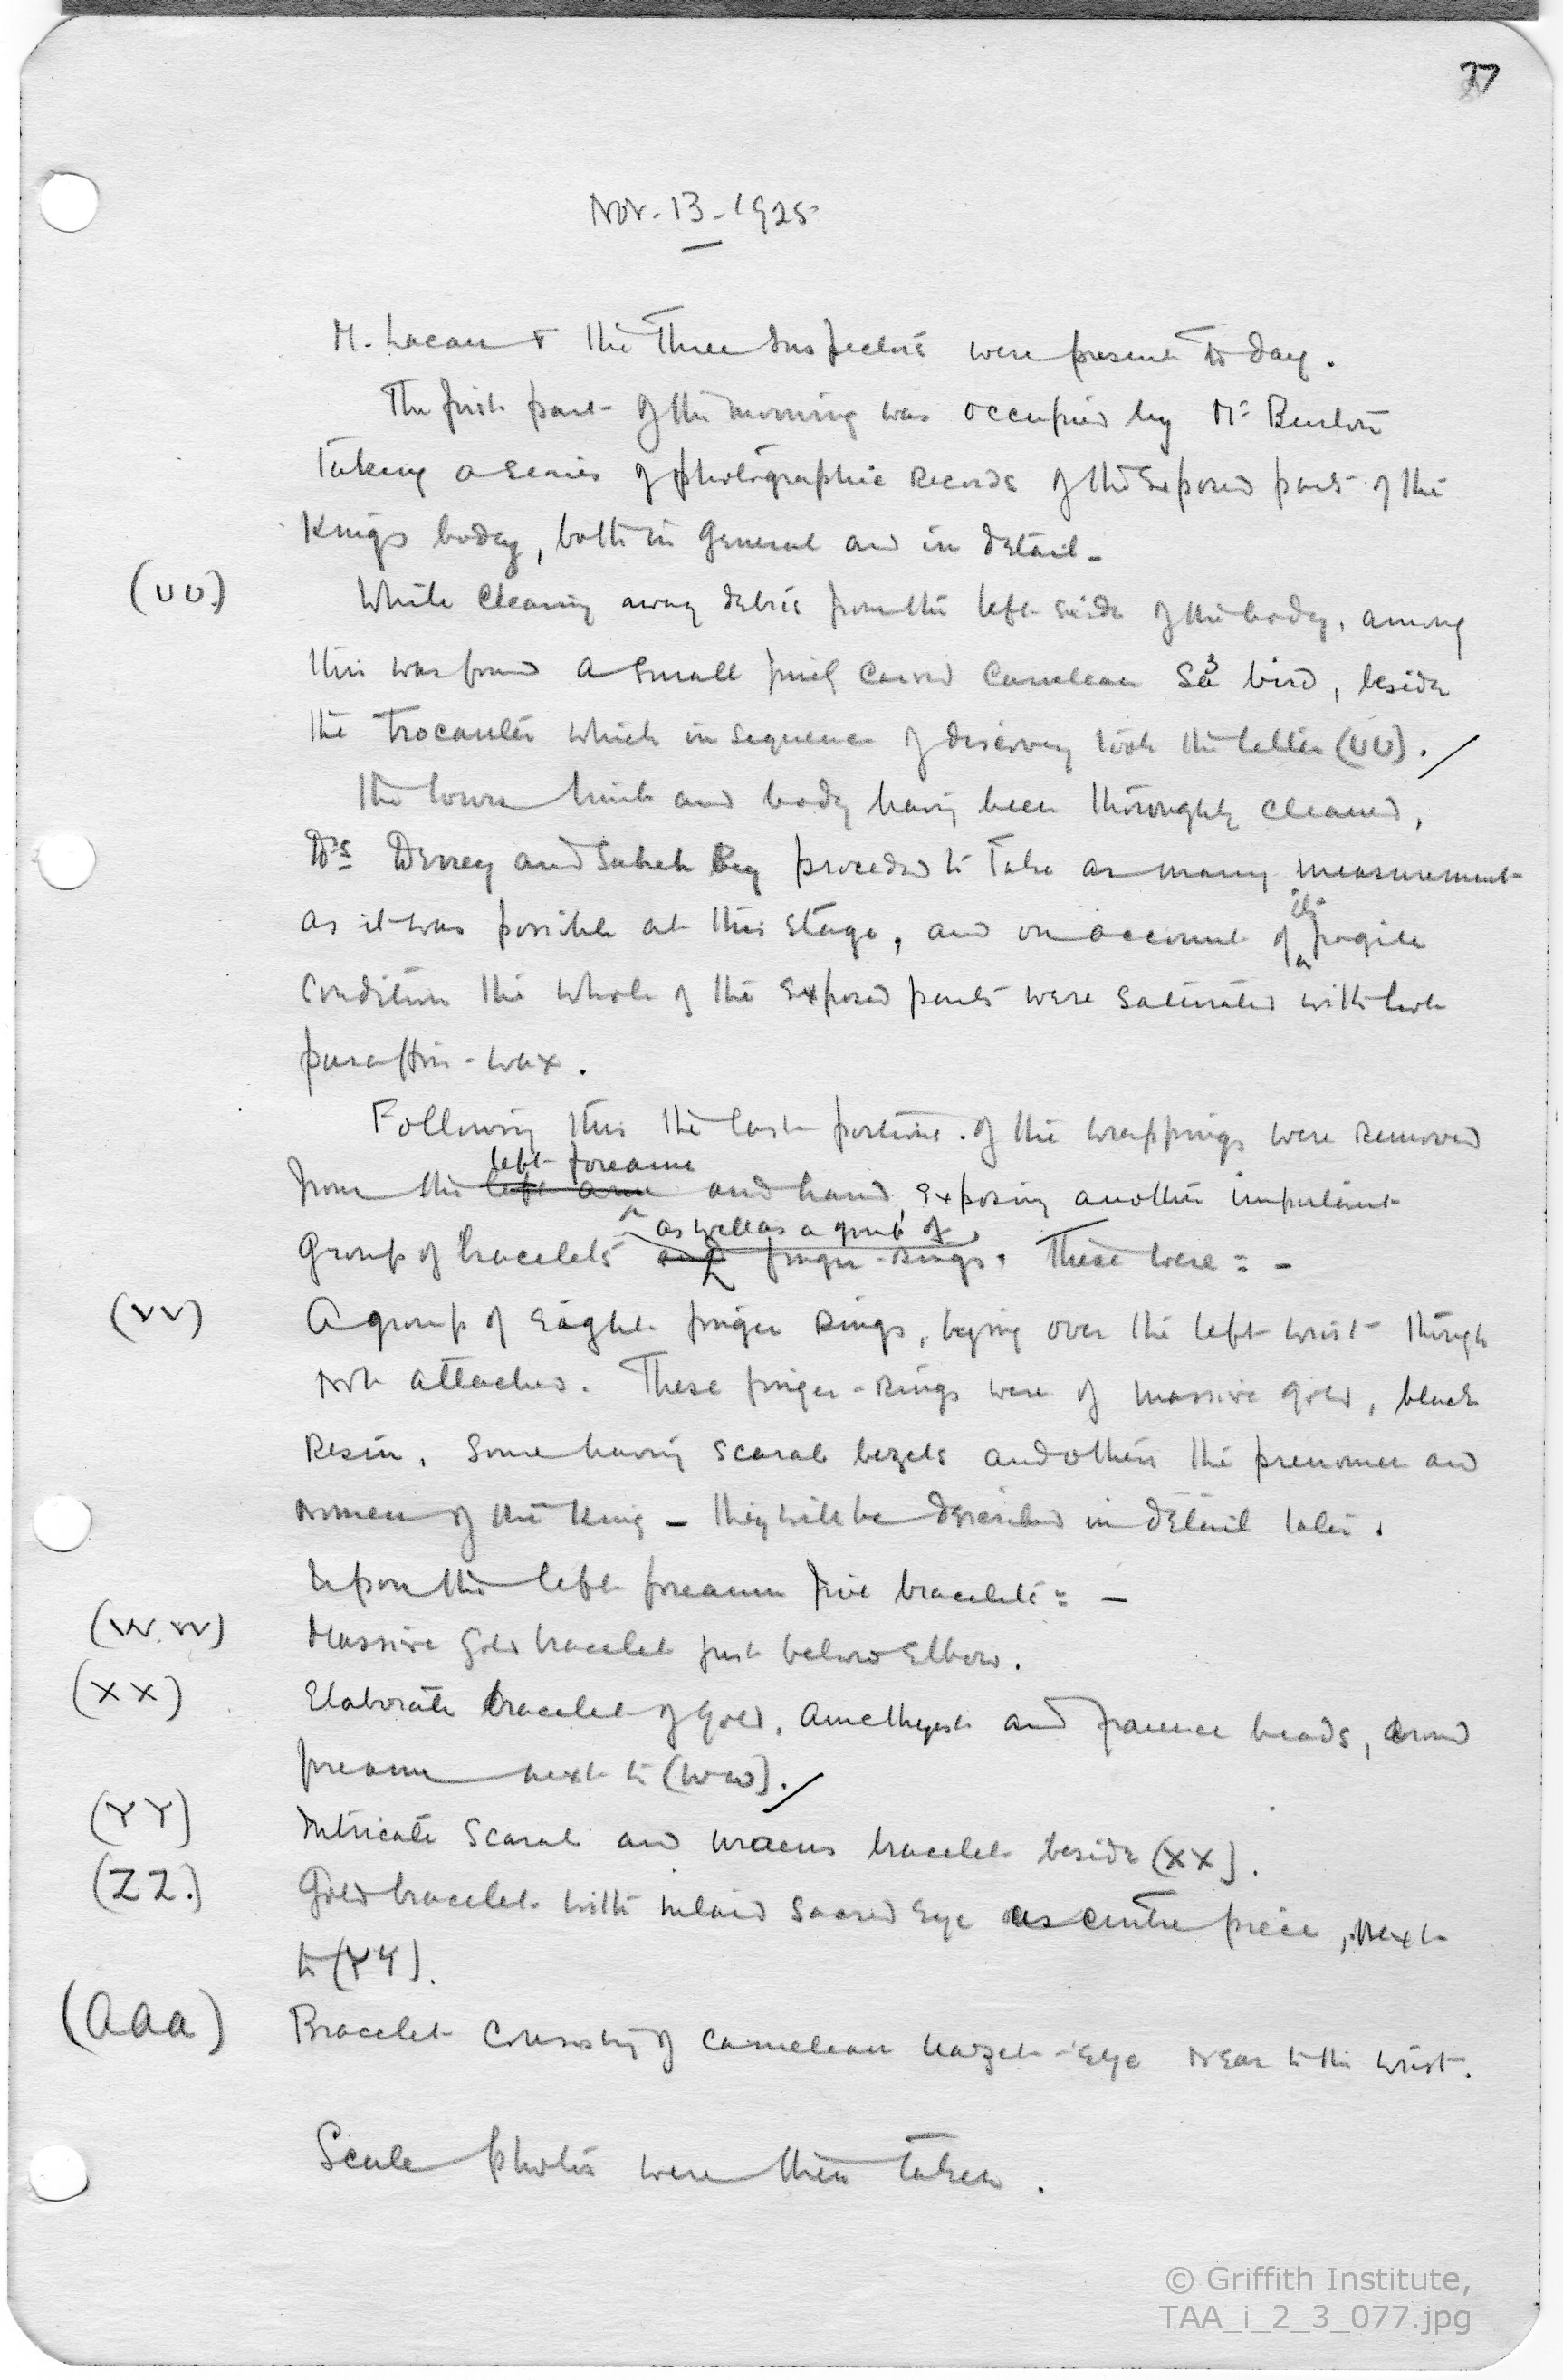 77
Nov. 13. 1925
M. Lacau & the Three Inspectors were present to day.
The first part of the morning was occupied by Mr Burton
taking a series of photographic records of the exposed parts of the
Kings body, both in general and in detail.
(UU.) While cleaning away debris from the left side of the body, among
this was found a small finely carved carnelean Sa3 bird, beside
the Trocanter which in sequence of discovery took the letter (UU). /
The lower limbs and body having been thoroughly cleaned,
Drs Derrey and Saleh Bey proceeded to take as many measurements
as it was possible at this stage, and on account of its fragile
condition the whole of the exposed parts were saturated with hot
paraffin-wax.
Following this the last portions of the wrappings were removed
from the left arm left forearm and hand, exposing another important
group of bracelets and as well as a group of finger-rings. These were:-
(VV) A group of eight finger rings, lying over the left wrist though
not attached. These finger-rings were of massive gold, black
resin, some having scarab bezels and others the prenomen and
nomen of the King - they will be described in detail later.
Upon the left forearm five bracelets:-
(W.W) Massive gold bracelet just below elbow.
(XX) Elaborate bracelet of gold, amethyst and faience beads, round
forearm next to (WW). /
(YY) Intricate scarab and uraeus bracelet beside (XX).
(ZZ.) Gold bracelet with inlaid sacred eye as centre piece, next
to (YY).
(aaa) Bracelet consisting of carnelean uazet-eye near to the wrist.
Scale photos were then taken.
© Griffith Institute,
TAA_i_2_3_077.jpg